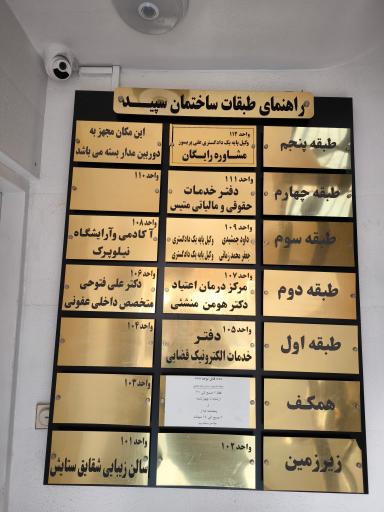 راهنمای طبقات ساختمان سپید
طبقه پنجم
واحد ۱۱۲
وکیل پایه یک دادگستری علی پریسوز
مشاوره رایگان
این مکان مجهز به
دوربین مدار بسته می باشد
طبقه چهارم
واحد ۱۱۱
دفتر خدمات
حقوقی و مالیاتی متیس
واحد ۱۱۰
طبقه سوم
واحد ۱۰۹
داود جمشیدی وکیل پایه یک دادگستری
جعفر محمد زمانی وکیل پایه یک دادگستری
واحد ۱۰۸
آکادمی وآرایشگاه
نیلوپرک
طبقه دوم
واحد ۱۰۷
مرکز درمان اعتیاد
دکتر هومن منشئی
واحد ۱۰۶
دکتر علی فتوحی
متخصص داخلی عفونی
طبقه اول
واحد ۱۰۵
دفتر
خدمات الکترونیک قضایی
واحد ۱۰۴
همکف
واحد ۱۰۳
زیرزمین
واحد ۱۰۲
واحد ۱۰۱
سالن زیبایی شقایق ستایش